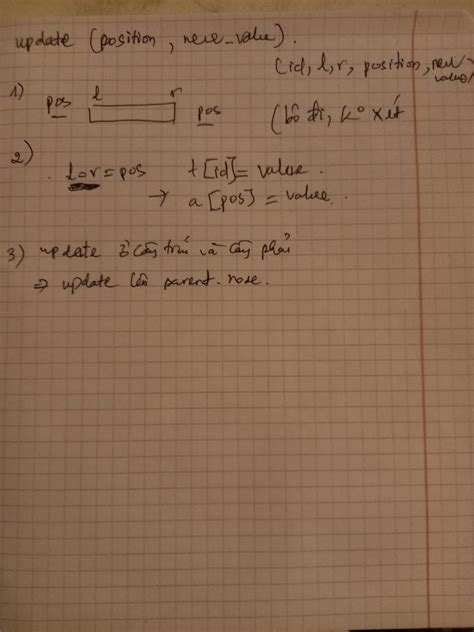 update (position, new_value).
(id, l, r, position, new_value)
1)
pos l r pos (bỏ đi, k° xét
2)
l=r=pos t[id]= value.
→ a[pos] = value.
3) update ở cây trái và cây phải
⇒ update lên parent node.